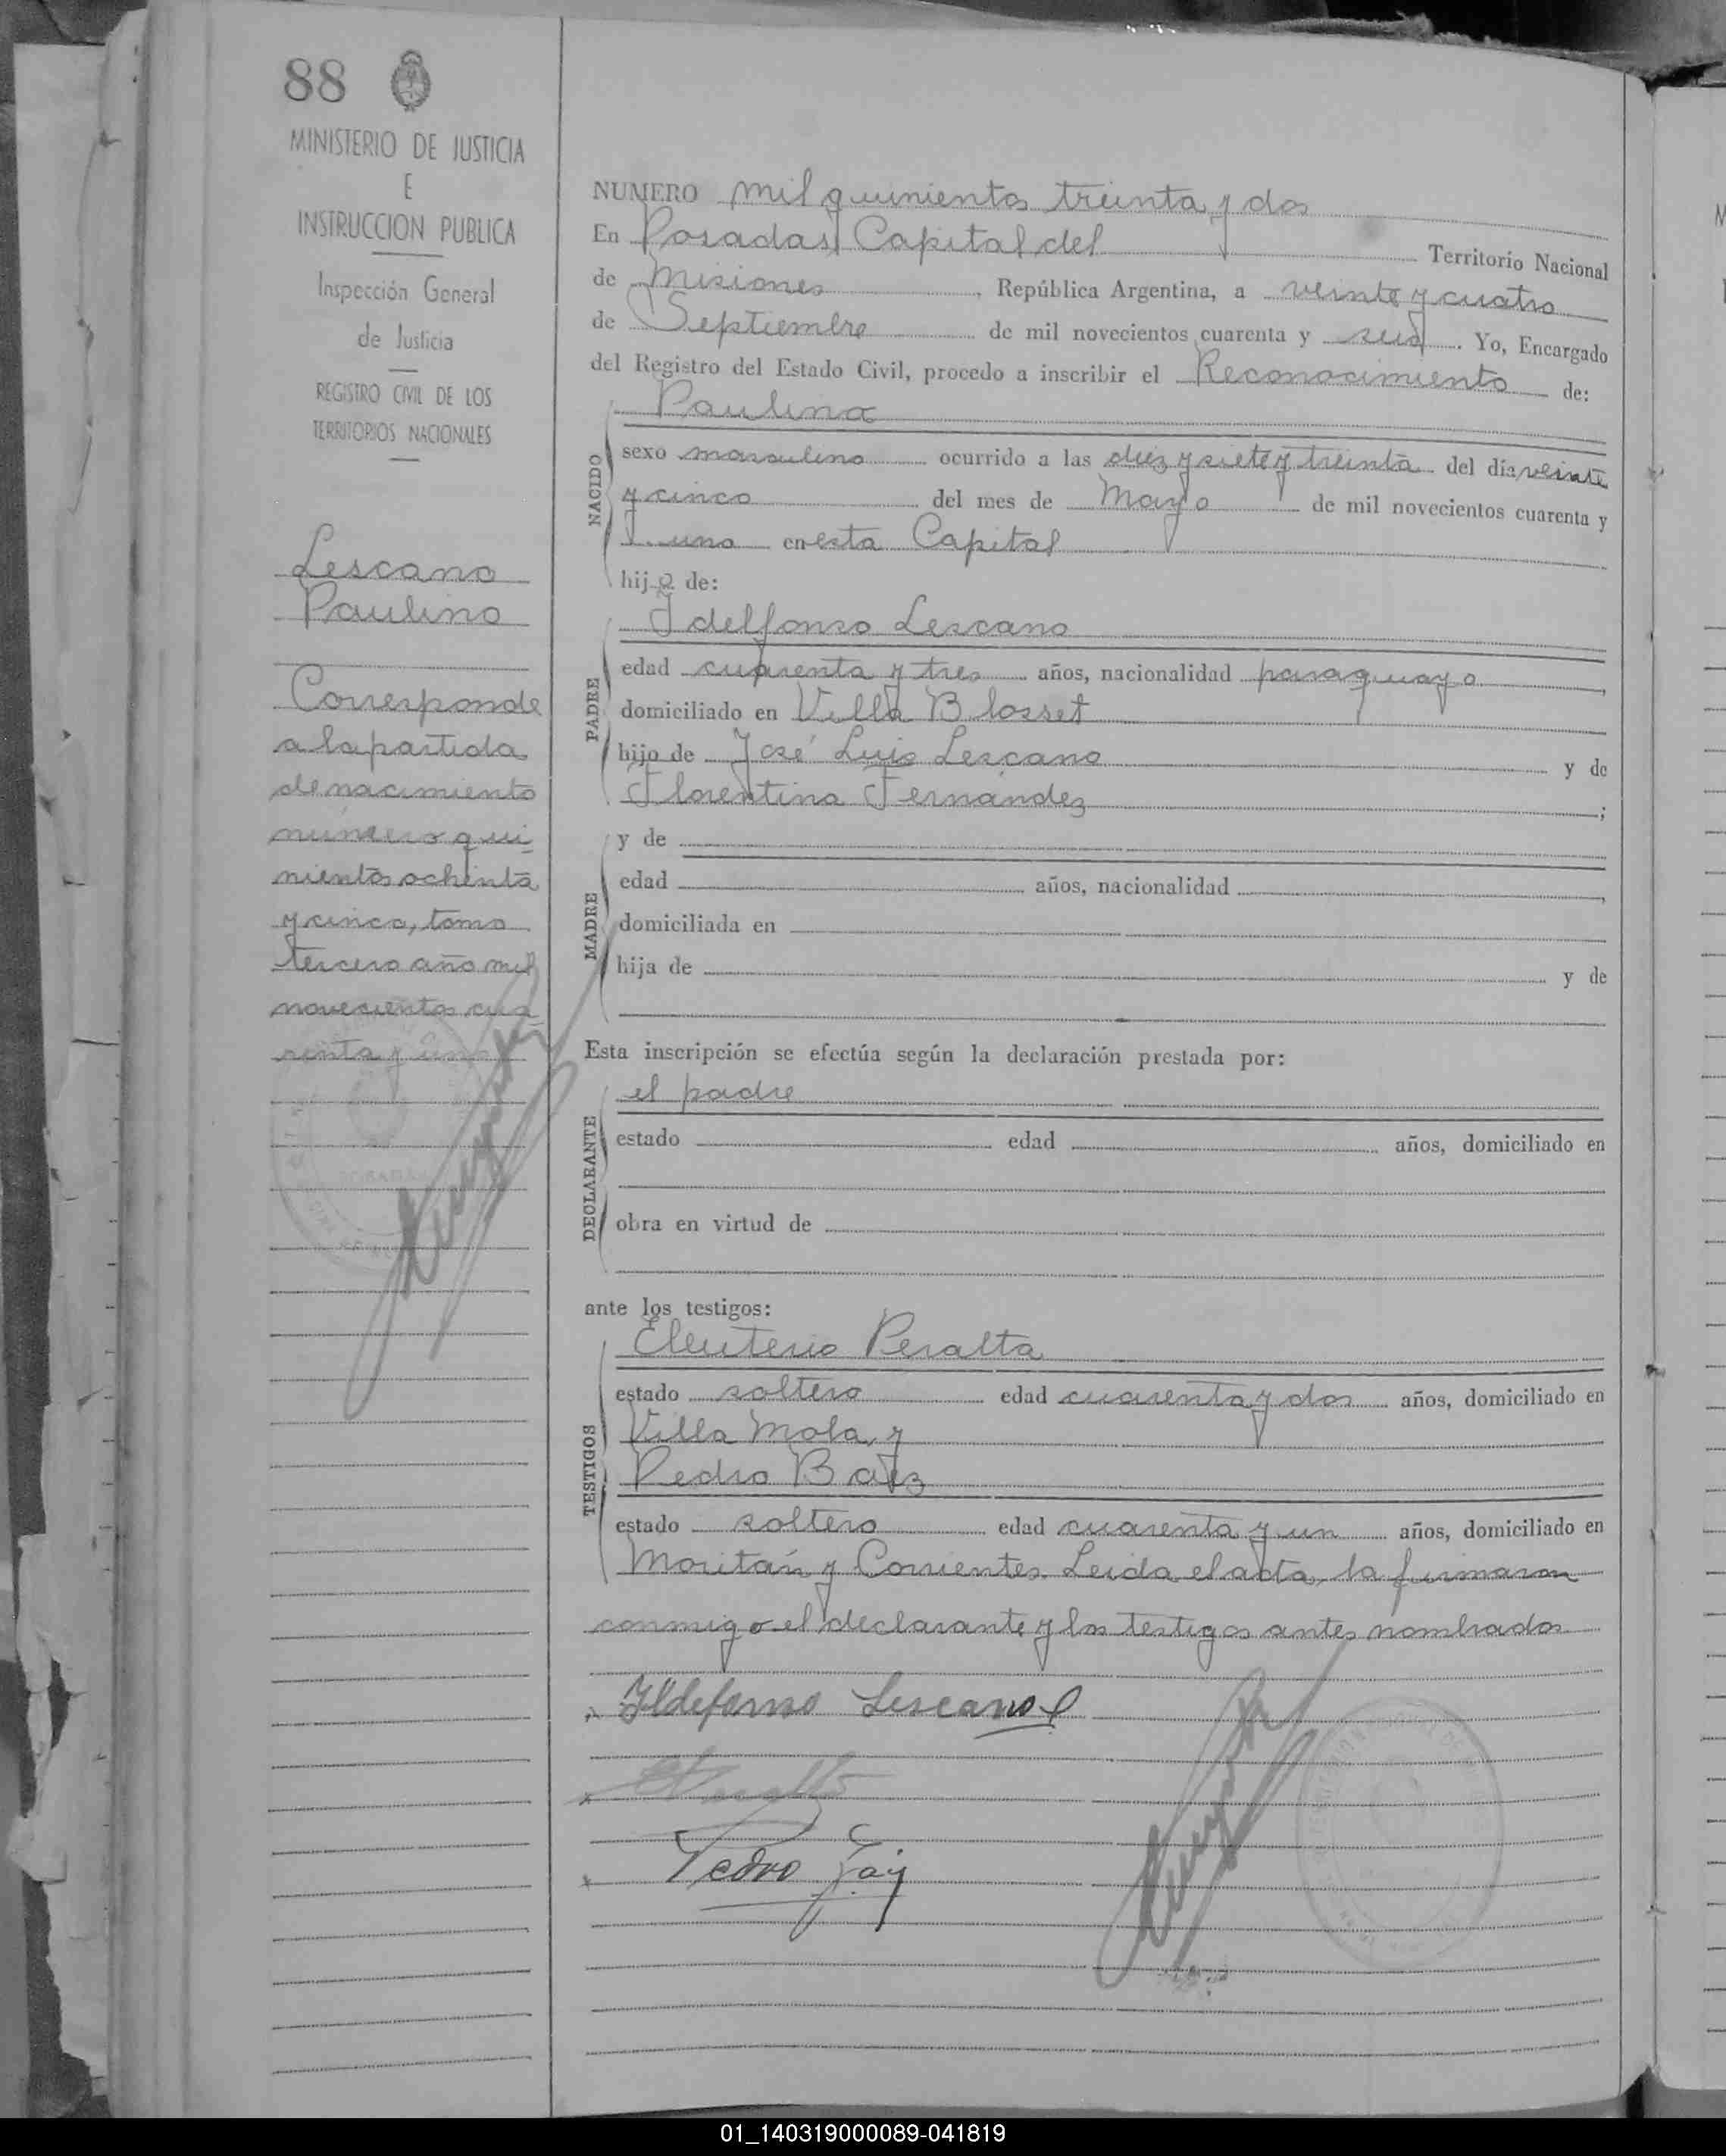 88
MINISTERIO DE JUSTICIA
E
INSTRUCCION PUBLICA
Inspección General
de Justicia
REGISTRO CIVIL DE LOS
TERRITORIOS NACIONALES
Lescano
Paulino
Corresponde
a la partida
de nacimiento
número qui
nientos ochenta
y cinco, tomo
tercero año mil
novecientos cua
renta y uno
NUMERO mil quinientos treinta y dos
En Posadas Capital del Territorio Nacional
de Misiones, República Argentina, a veinte y cuatro
de Septiembre de mil novecientos cuarenta y seis. Yo, Encargado
del Registro del Estado Civil, procedo a inscribir el Reconocimiento de:
NACIDO
Paulino
sexo masculino ocurrido a las diez y siete y treinta del día veinte
y cinco del mes de Mayo de mil novecientos cuarenta y
uno en esta Capital
hijo de:
PADRE
Idelfonso Lescano
edad cuarenta y tres años, nacionalidad paraguayo,
domiciliado en Villa Blosset
hijo de José Luis Lescano y de
Florentina Fernández;
MADRE
y de
edad años, nacionalidad,
domiciliada en
hija de y de
Esta inscripción se efectúa según la declaración prestada por:
DECLARANTE
el padre
estado edad años, domiciliado en
obra en virtud de
ante los testigos:
TESTIGOS
Eleuterio Peralta
estado soltero edad cuarenta y dos años, domiciliado en
Villa Mola, y
Pedro Baez
estado soltero edad cuarenta y un años, domiciliado en
Moritán y Corrientes. Leida el acta, la firmaron
conmigo el declarante y los testigos antes nombrados
Ildefonso Lescano
Pedro
01_140319000089-041819